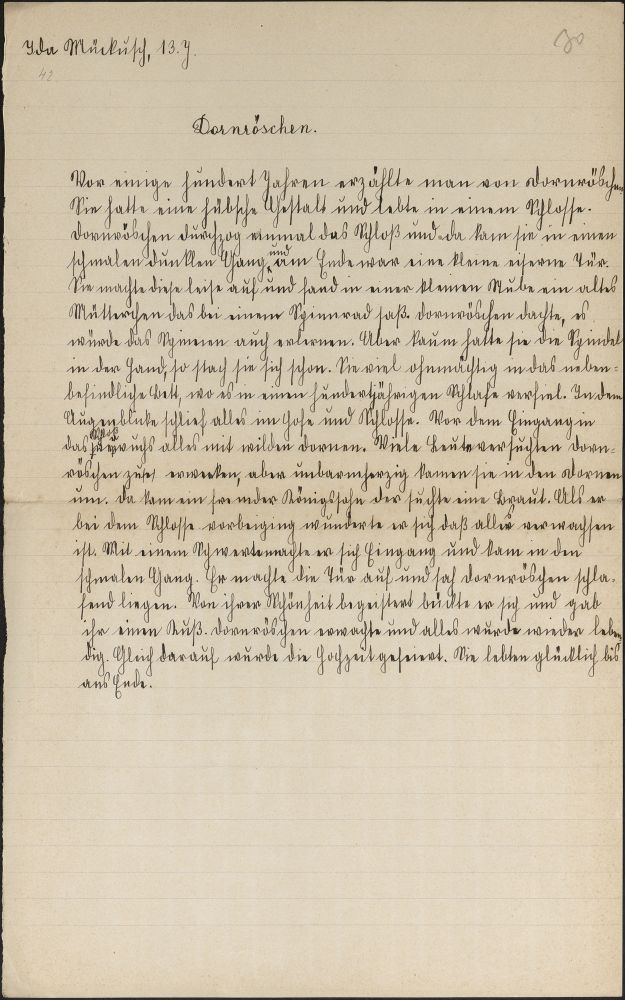 Ida Mückusch, 13. J.
42
30
Dornröschen.
Vor einige hundert Jahren erzählte man von Dornröschen
Sie hatte eine hübsche Gestalt und lebte in einem Schlosse.
Dornröschen durchzog einmal das Schloß und da kam sie in einen
schmalen dunklen Gang, und am Ende war eine kleine eiserne Tür.
Sie machte diese leise auf und fand in einer kleinen Stube ein altes
Mütterchen das bei einem Spinnrad saß. Dornröschen dachte, es
würde das Spinnen auch erlernen. Aber kaum hatte sie die Spindel
in der Hand, so stach sie sich schon. Sie viel ohnmächtig in das neben-
befindliche Bett, wo es in einen hundertjährigen Schlafe verfiel. In dem
Augenblicke schlief alles im Hofe und Schlosse. Vor dem Eingang in
das Schloß wuchs alles mit wilden Dornen. Viele Leute versuchten Dorn-
röschen zu erwecken, aber unbarmherzig kamen sie in den Dornen
um. Da kam ein fremder Königssohn der suchte eine Braut. Als er
bei dem Schlosse vorbeiging wunderte er sich daß alles verwachsen
ist. Mit einem Schwerte machte er sich Eingang und kam in den
schmalen Gang. Er machte die Tür auf und sah Dornröschen schla-
fend liegen. Von ihrer Schönheit begeistert bückte er sich und gab
ihr einen Kuß. Dornröschen erwachte und alles wurde wieder leben
dig. Gleich darauf wurde die Hochzeit gefeiert. Sie lebten glücklich bis
ans Ende.